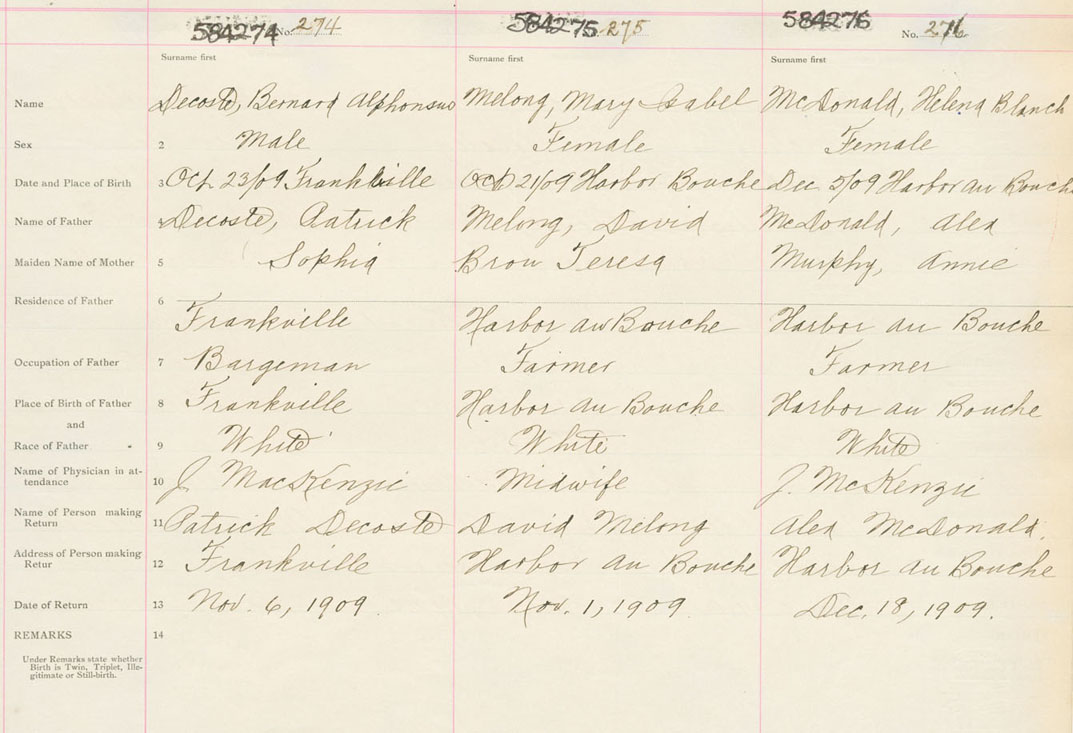 584274 No. 274 584275 275 584276 No. 276
Surname first Surname first Surname first
Name Decoste, Bernard Alphonsus Melong, Mary Isabel McDonald, Helena Blanch
Sex 2 Male Female Female
Date and Place of Birth 3 Oct. 23/09 Frankville Oct 21/09 Harbor Bouche Dec 5/09 Harbor au Bouche
Name of Father Decoste, Patrick Melong, David McDonald, Alex
Maiden Name of Mother 5 Sophia Brow Teresa Murphy, Annie
Residence of Father 6
Frankville Harbor au Bouche Harbor au Bouche
Occupation of Father 7 Bargeman Farmer Farmer
Place of Birth of Father 8 Frankville Harbor au Bouche Harbor au Bouche
and
Race of Father 9 White White White
Name of Physician in at-
tendance 10 J MacKenzie Midwife J. McKenzie
Name of Person making
Return 11 Patrick Decoste David Melong Alex McDonald.
Address of Person making
Retur 12 Frankville Harbor au Bouche Harbor au Bouche
Date of Return 13 Nov. 6, 1909. Nov. 1, 1909. Dec. 18, 1909.
REMARKS 14
Under Remarks state whether
Birth is Twin, Triplet, Ille-
gitimate or Still-birth.